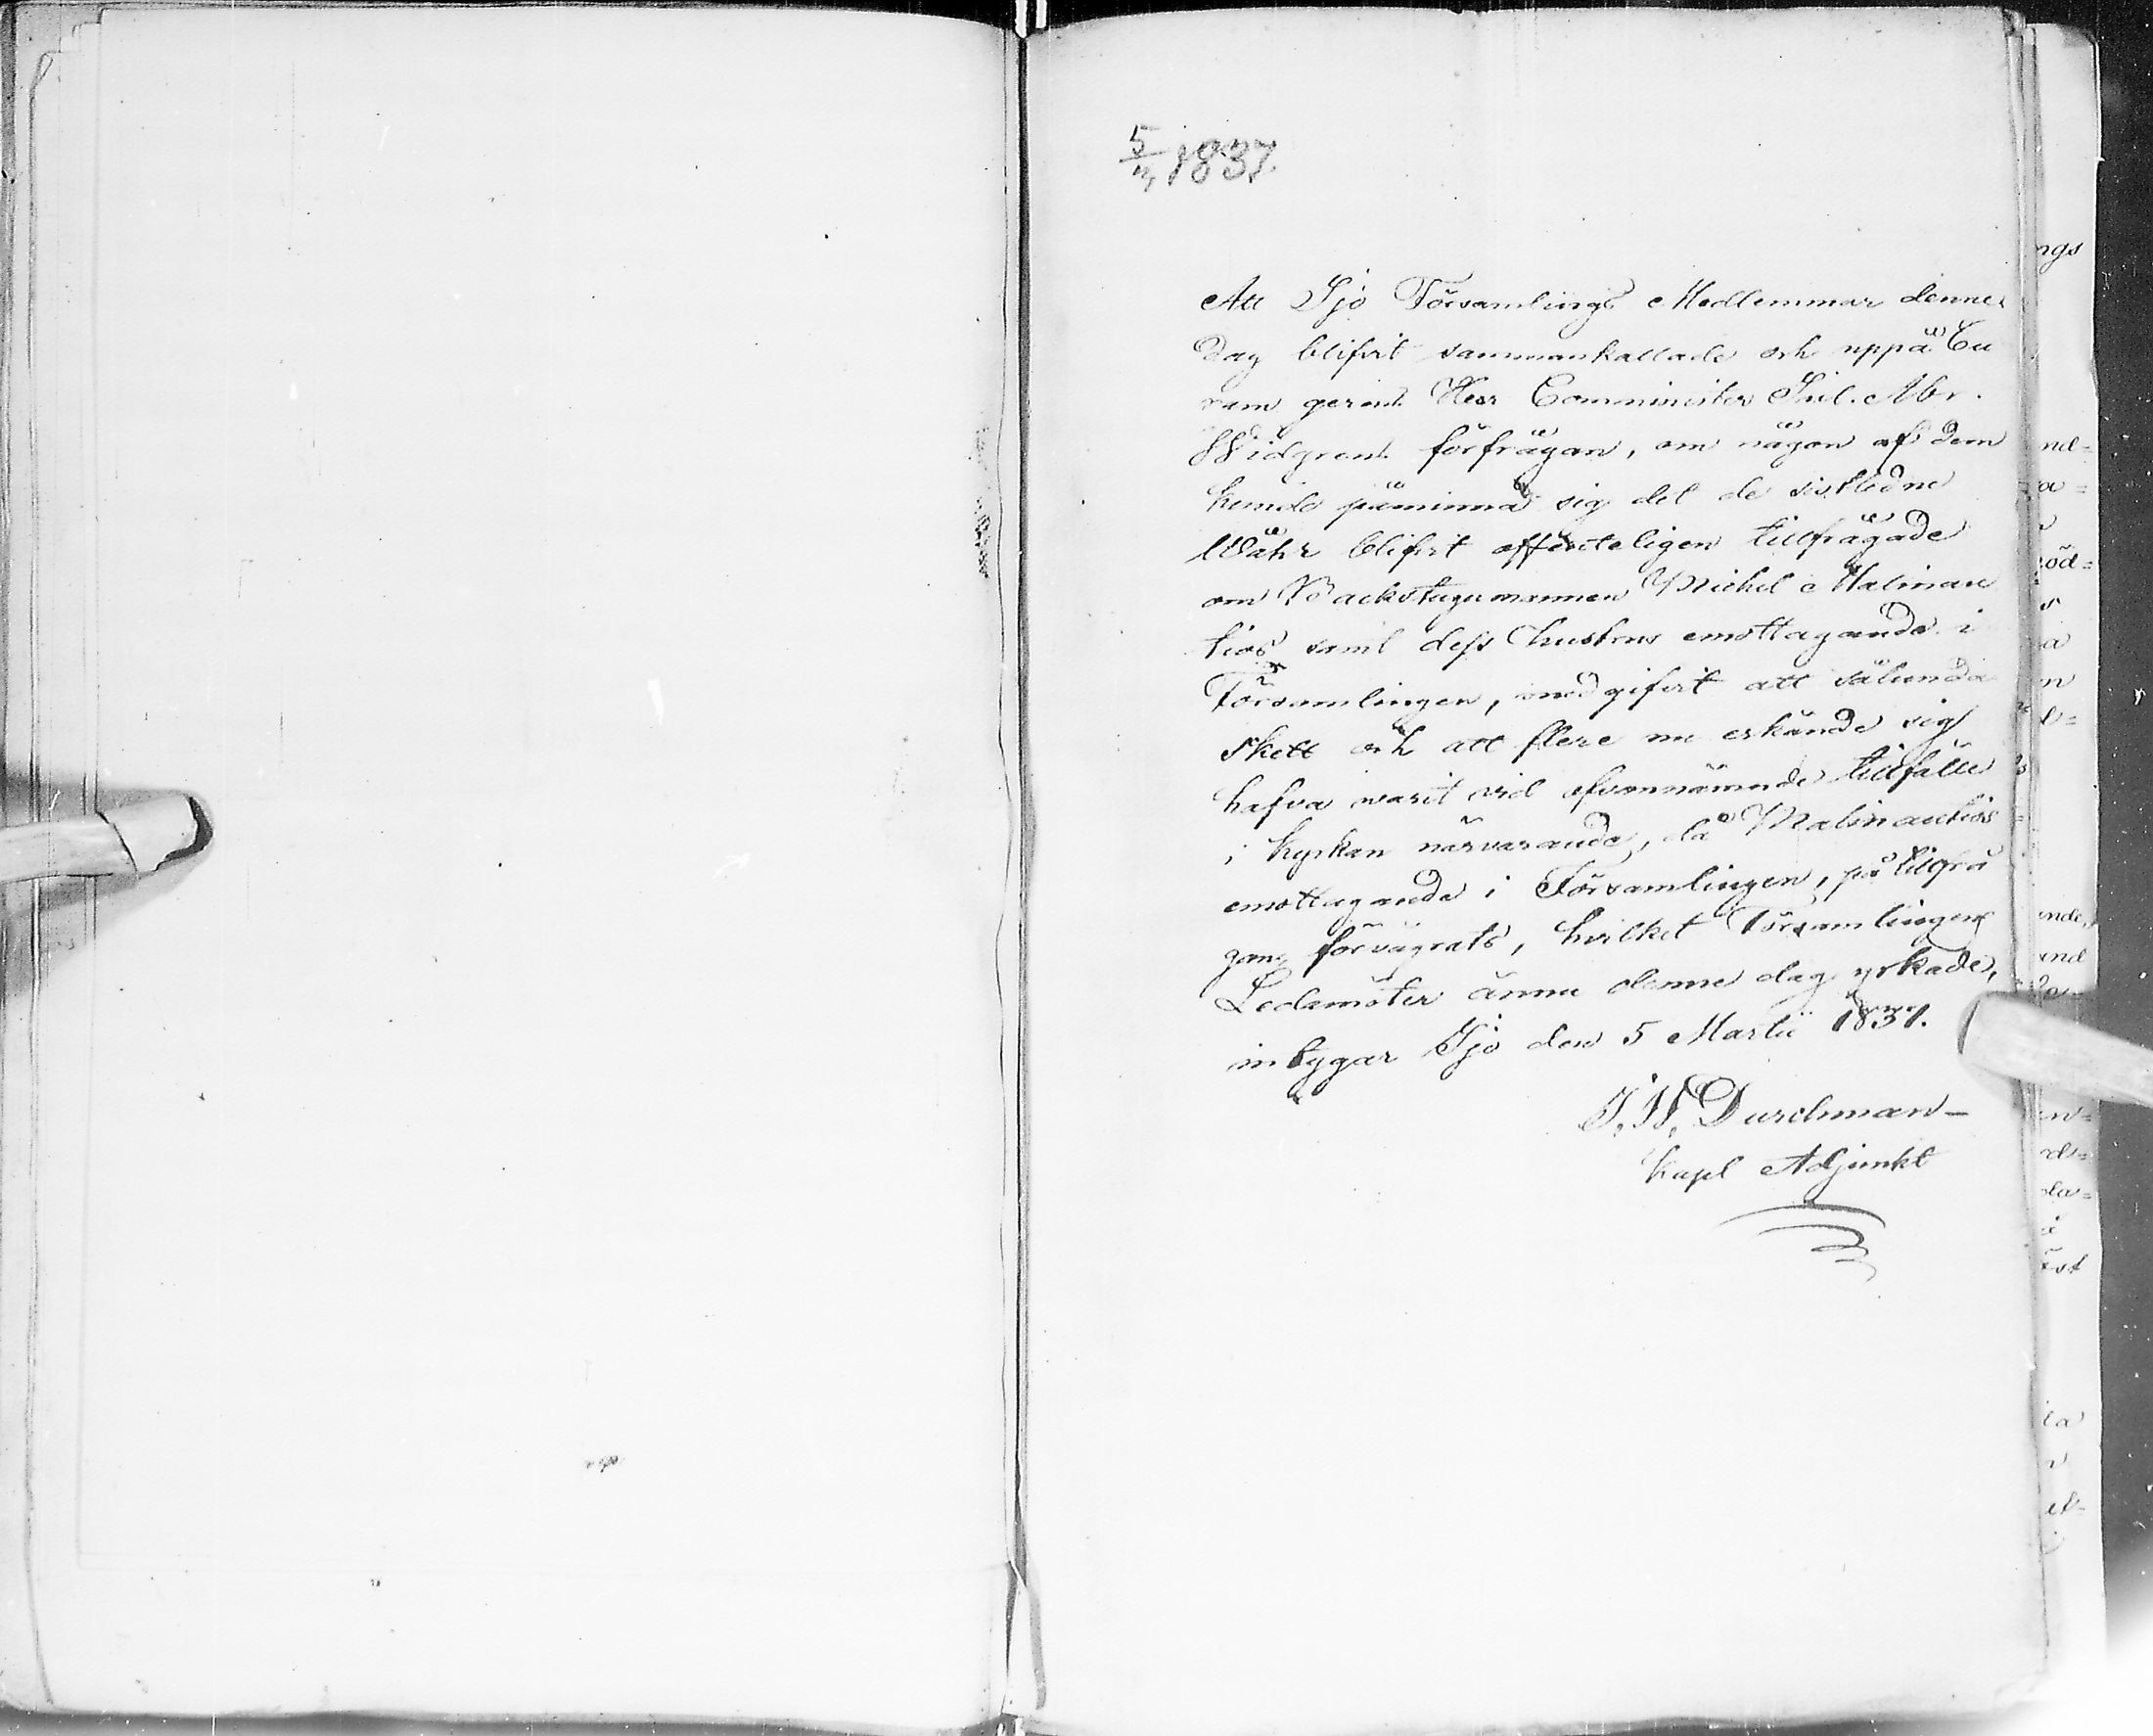 5/3 1837.
Att Ijo Församlings Medlemmar denne
Dag blifvit sammankallade och uppå Cu
ram gerent. Herr Comminister Phil. Mr.
Widgrens förfrågan, om någon af dem
kunde påminna sig det de sistledne
Wåhr blifvit offenteligen tillfrågade
om Backstugumannen Michel Malinau
tios samt dess hustrus emottagande i
Församlingen, medgifvit att sålunda
skett och att flere nu erkände sig
hafva warit vid ofvannämnde tillfälle
i kyrkan närvarande, då Malinautios
emottagande i Församlingen, på tillfrå
gan, förvägrats, hvilket Församlingens
Ledamöter ännu denne dag yrkade,
intygar Ijo den 5 Martii 1837.
J. W. Durchman
Kapl Adjunkt
ngs
nd=
a=
öd=
a
n
nde,
und
en=
rds=
da=
öst
ta